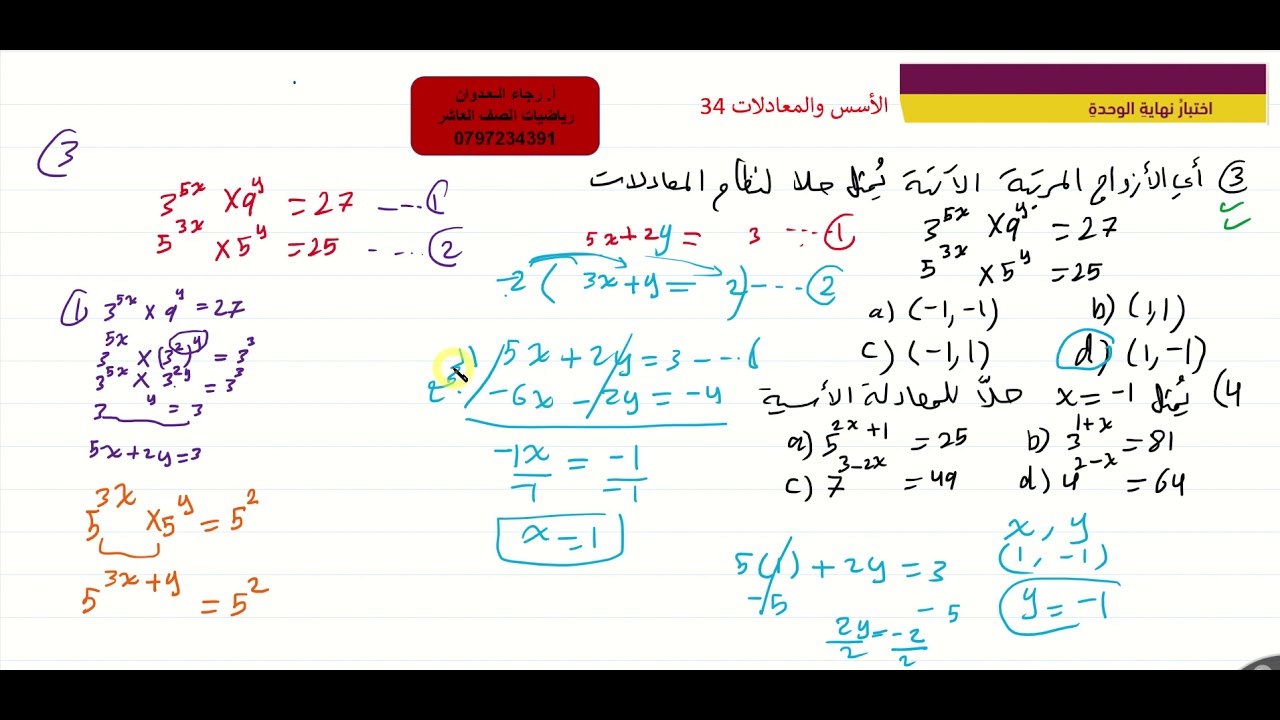 اختبارُ نهايةِ الوحدةِ
الأسس والمعادلات 34
أ. رجاء العدوان
رياضيات الصف العاشر
0797234391
③ أي الأزواج المرتبة الآتية يُمثل حلا لنظام المعادلات
3^{5x} × 9^y = 27
5^{3x} × 5^y = 25
a) (-1, -1) b) (1, 1)
c) (-1, 1) d) (1, -1)
4) يُمثل x = -1 حلاً للمعادلة الأسية
a) 5^{2x+1} = 25 b) 3^{1+x} = 81
c) 7^{3-2x} = 49 d) 4^{2-x} = 64
③
3^{5x} × 9^y = 27 --- ①
5^{3x} × 5^y = 25 --- ②
① 3^{5x} × 9^y = 27
3^{5x} × (3^2)^y = 3^3
3^{5x} × 3^{2y} = 3^3
3^y = 3
5x + 2y = 3
5^{3x} × 5^y = 5^2
5^{3x+y} = 5^2
5x + 2y = 3 --- ①
-2 ( 3x + y = 2) --- ②
5x + 2y = 3 --- 1
-6x - 2y = -4
-1x = -1
-1 -1
x = 1
5(1) + 2y = 3
-5 -5
2y = -2
2 2
x , y
(1, -1)
y = -1